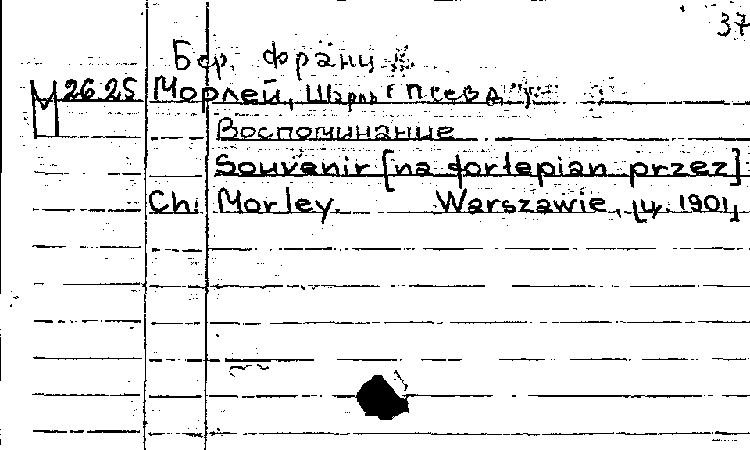 37
Бер. Франц
М 26 25 Морлей, Шарль [псевд.]
Воспоминание
Souvenir [na fortepian przez]
Ch. Morley. Warszawie, [ц. 1901]